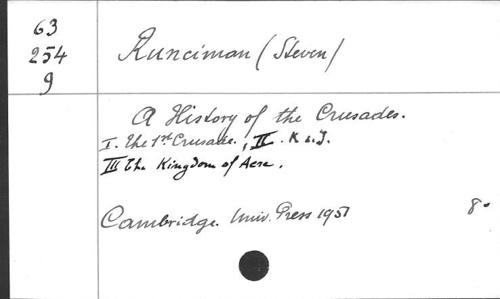 63
254
9
Runciman (Steven)
A History of the Crusades.
I. The 1st Crusade. ; II. K. J.
III The Kingdom of Acre.
Cambridge. Univ. Press 1951
8°